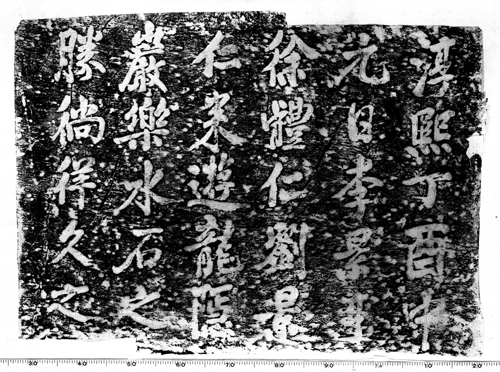 淳熙丁酉中
元日李景
徐體仁劉景
仁來遊龍隱
巖樂水石之
勝徜徉久之